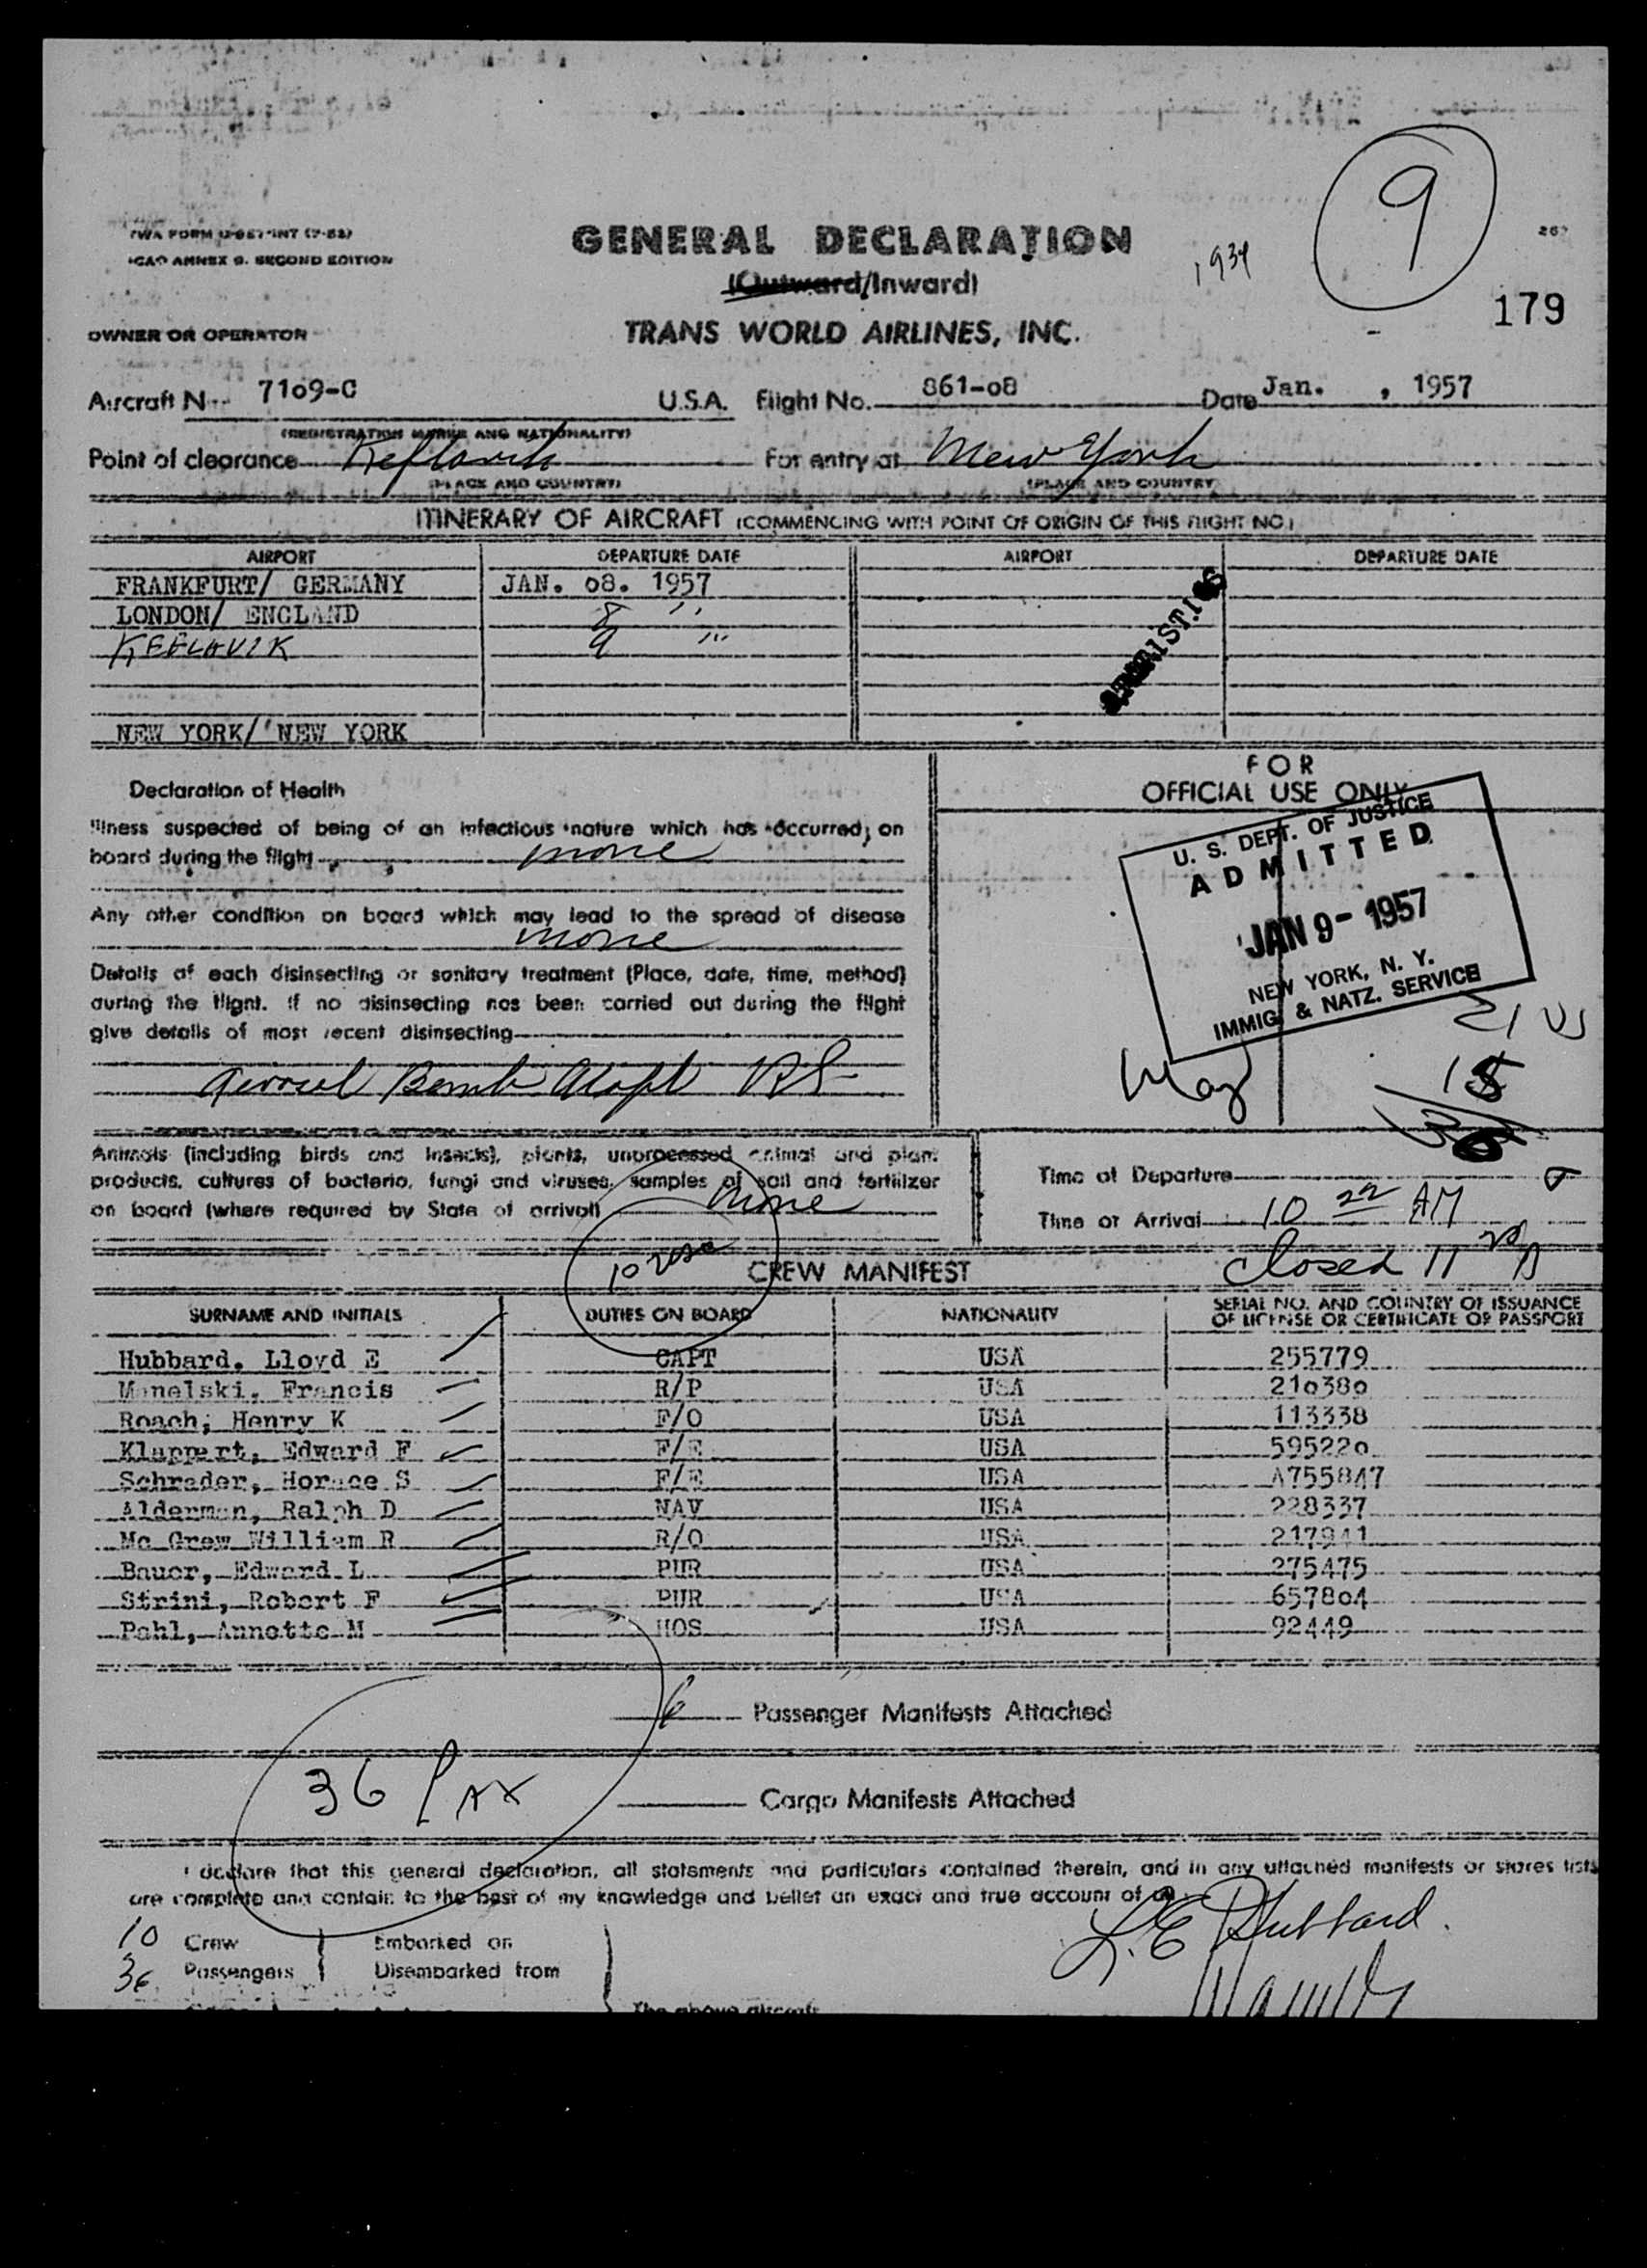 TWA FORM
ICAO ANNEX 9. SECOND EDITION
GENERAL DECLARATION
(Outward/Inward)
1934
9
267
179
OWNER OR OPERATOR
TRANS WORLD AIRLINES, INC.
Aircraft N 7109-C U.S.A. Flight No. 861-08 Date Jan. , 1957
(REGISTRATION MARKS AND NATIONALITY)
Point of clearance Keflavik For entry at New York
(PLACE AND COUNTRY) (PLACE AND COUNTRY)
ITINERARY OF AIRCRAFT (COMMENCING WITH POINT OF ORIGIN OF THIS FLIGHT NO.)
AIRPORT DEPARTURE DATE AIRPORT DEPARTURE DATE
FRANKFURT/ GERMANY JAN. 08. 1957
LONDON/ ENGLAND 8 ''
KEFLAVIK 9 '''
NEW YORK/ NEW YORK
Declaration of Health
Illness suspected of being of an infectious nature which has occurred on
board during the flight none
Any other condition on board which may lead to the spread of disease
none
Details of each disinsecting or sanitary treatment (Place, date, time, method)
during the flight. If no disinsecting has been carried out during the flight
give details of most recent disinsecting
Aerosol Bomb
FOR
OFFICIAL USE ONLY
U. S. DEPT. OF JUSTICE
ADMITTED
JAN 9- 1957
NEW YORK, N. Y.
IMMIG. & NATZ. SERVICE
21 US
15
Animals (including birds and insects), plants, unprocessed animal and plant
products, cultures of bacteria, fungi and viruses, samples of soil and fertilizer
on board (where required by State of arrival) none
Time of Departure
Time of Arrival 10 22 AM
Closed 11
10
CREW MANIFEST
SURNAME AND INITIALS DUTIES ON BOARD NATIONALITY SERIAL NO. AND COUNTRY OF ISSUANCE
OF LICENSE OR CERTIFICATE OR PASSPORT
Hubbard, Lloyd E CAPT USA 255779
Manelski, Francis R/P USA 210380
Roach, Henry K F/O USA 113338
Klappert, Edward F F/E USA 595220
Schrader, Horace S F/E USA A755847
Alderman, Ralph D NAV USA 228337
Mc Grew William R R/O USA 217941
Bauer, Edward L PUR USA 275475
Strini, Robert F PUR USA 657804
Pahl, Annette M HOS USA 92449
6 Passenger Manifests Attached
36 Pax
Cargo Manifests Attached
I declare that this general declaration, all statements and particulars contained therein, and in any attached manifests or stores lists
are complete and contain to the best of my knowledge and belief an exact and true account of
L.E Hubbard.
10 Crew Embarked on
36 Passengers Disembarked from
The above aircraft